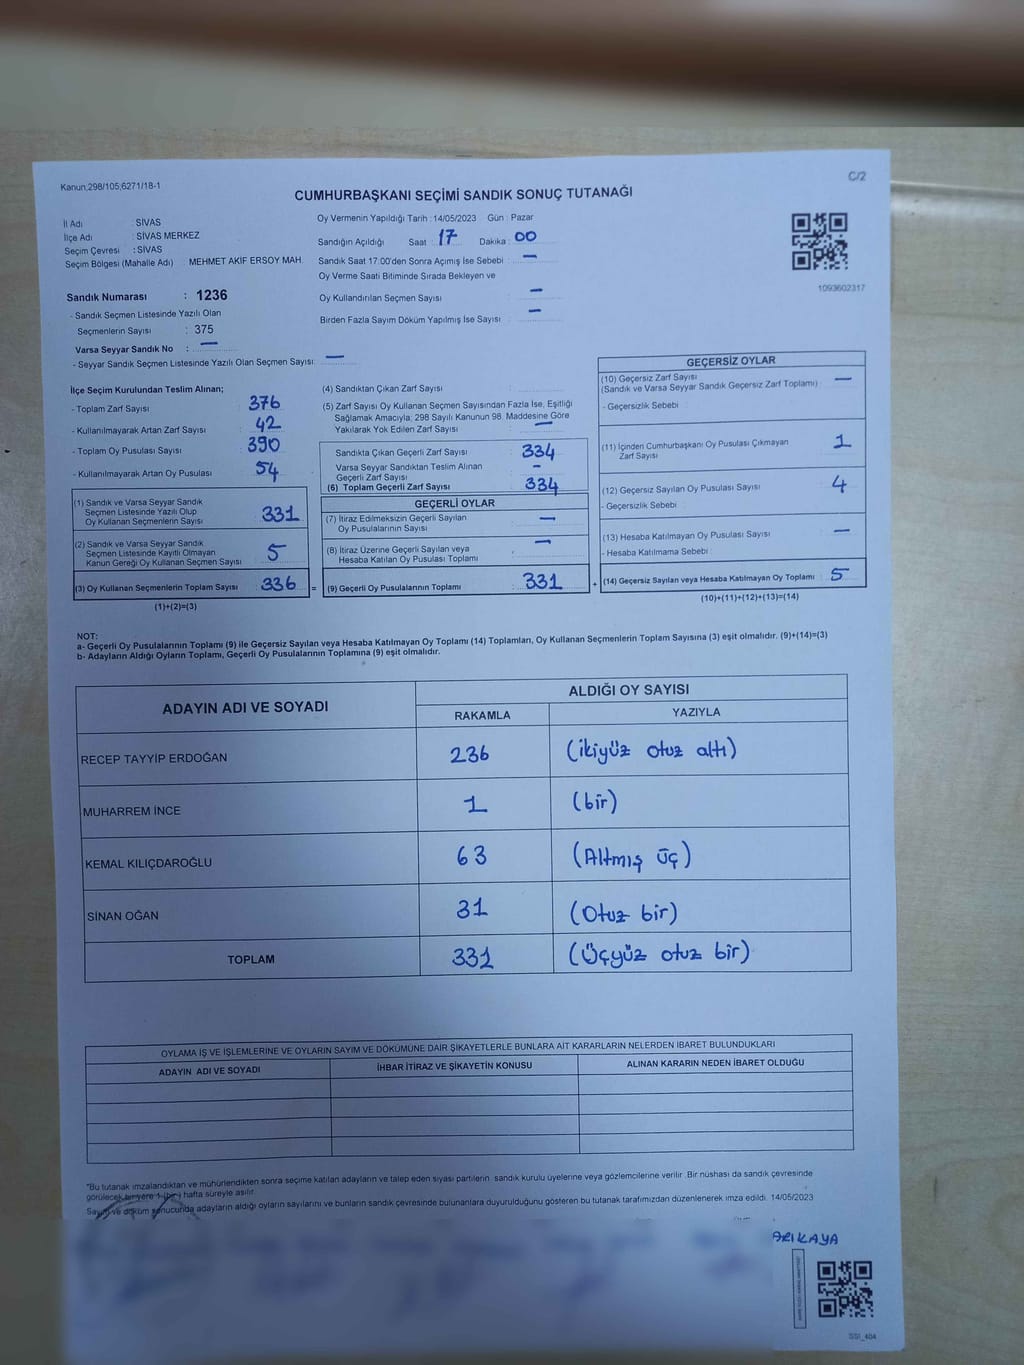 Kanun,298/105,6271/18-1
C/2
CUMHURBAŞKANI SEÇİMİ SANDIK SONUÇ TUTANAĞI
İl Adı : SİVAS
İlçe Adı : SİVAS MERKEZ
Seçim Çevresi : SİVAS
Seçim Bölgesi (Mahalle Adı) : MEHMET AKİF ERSOY MAH.
Oy Vermenin Yapıldığı Tarih : 14/05/2023 Gün : Pazar
Sandığın Açıldığı Saat : 17 Dakika : 00
Sandık Saat 17:00'den Sonra Açımış İse Sebebi : —
Oy Verme Saati Bitiminde Sırada Bekleyen ve
Oy Kullandırılan Seçmen Sayısı : —
Birden Fazla Sayım Döküm Yapılmış İse Sayısı : —
1093602317
Sandık Numarası : 1236
- Sandık Seçmen Listesinde Yazılı Olan
Seçmenlerin Sayısı : 375
Varsa Seyyar Sandık No : —
- Seyyar Sandık Seçmen Listesinde Yazılı Olan Seçmen Sayısı: —
İlçe Seçim Kurulundan Teslim Alınan;
- Toplam Zarf Sayısı 376
- Kullanılmayarak Artan Zarf Sayısı 42
- Toplam Oy Pusulası Sayısı 390
- Kullanılmayarak Artan Oy Pusulası 54
(1) Sandık ve Varsa Seyyar Sandık
Seçmen Listesinde Yazılı Olup
Oy Kullanan Seçmenlerin Sayısı 331
(2) Sandık ve Varsa Seyyar Sandık
Seçmen Listesinde Kayıtlı Olmayan
Kanun Gereği Oy Kullanan Seçmen Sayısı 5
(3) Oy Kullanan Seçmenlerin Toplam Sayısı 336 =
(1)+(2)=(3)
(4) Sandıktan Çıkan Zarf Sayısı :
(5) Zarf Sayısı Oy Kullanan Seçmen Sayısından Fazla İse, Eşitliği
Sağlamak Amacıyla; 298 Sayılı Kanunun 98. Maddesine Göre
Yakılarak Yok Edilen Zarf Sayısı : —
Sandıkta Çıkan Geçerli Zarf Sayısı 334
Varsa Seyyar Sandıktan Teslim Alınan
Geçerli Zarf Sayısı –
(6) Toplam Geçerli Zarf Sayısı 334
GEÇERLİ OYLAR
(7) İtiraz Edilmeksizin Geçerli Sayılan
Oy Pusulalarının Sayısı —
(8) İtiraz Üzerine Geçerli Sayılan veya
Hesaba Katılan Oy Pusulası Toplamı —
(9) Geçerli Oy Pusulalarının Toplamı 331 +
GEÇERSİZ OYLAR
(10) Geçersiz Zarf Sayısı
(Sandık ve Varsa Seyyar Sandık Geçersiz Zarf Toplamı) —
- Geçersizlik Sebebi :
(11) İçinden Cumhurbaşkanı Oy Pusulası Çıkmayan
Zarf Sayısı 1
(12) Geçersiz Sayılan Oy Pusulası Sayısı 4
- Geçersizlik Sebebi :
(13) Hesaba Katılmayan Oy Pusulası Sayısı —
- Hesaba Katılmama Sebebi :
(14) Geçersiz Sayılan veya Hesaba Katılmayan Oy Toplamı : 5
(10)+(11)+(12)+(13)=(14)
NOT:
a- Geçerli Oy Pusulalarının Toplamı (9) ile Geçersiz Sayılan veya Hesaba Katılmayan Oy Toplamı (14) Toplamları, Oy Kullanan Seçmenlerin Toplam Sayısına (3) eşit olmalıdır. (9)+(14)=(3)
b- Adayların Aldığı Oyların Toplamı, Geçerli Oy Pusulalarının Toplamına (9) eşit olmalıdır.
ADAYIN ADI VE SOYADI
ALDIĞI OY SAYISI
RAKAMLA YAZIYLA
RECEP TAYYİP ERDOĞAN 236 (ikiyüz otuz altı)
MUHARREM İNCE 1 (bir)
KEMAL KILIÇDAROĞLU 63 (Altmış üç)
SİNAN OĞAN 31 (Otuz bir)
TOPLAM 331 (Üçyüz otuz bir)
OYLAMA İŞ VE İŞLEMLERİNE VE OYLARIN SAYIM VE DÖKÜMÜNE DAİR ŞİKAYETLERLE BUNLARA AİT KARARLARIN NELERDEN İBARET BULUNDUKLARI
ADAYIN ADI VE SOYADI İHBAR İTİRAZ VE ŞİKAYETİN KONUSU ALINAN KARARIN NEDEN İBARET OLDUĞU
"Bu tutanak imzalandıktan ve mühürlendikten sonra seçime katılan adayların ve talep eden siyasi partilerin sandık kurulu üyelerine veya gözlemcilerine verilir. Bir nüshası da sandık çevresinde
görülecek bir yere 1 (bir) hafta süreyle asılır.
Sayım ve döküm sonucunda adayların aldığı oyların sayılarını ve bunların sandık çevresinde bulunanlara duyurulduğunu gösteren bu tutanak tarafımızdan düzenlenerek imza edildi. 14/05/2023
ARIKAYA
SSİ_404